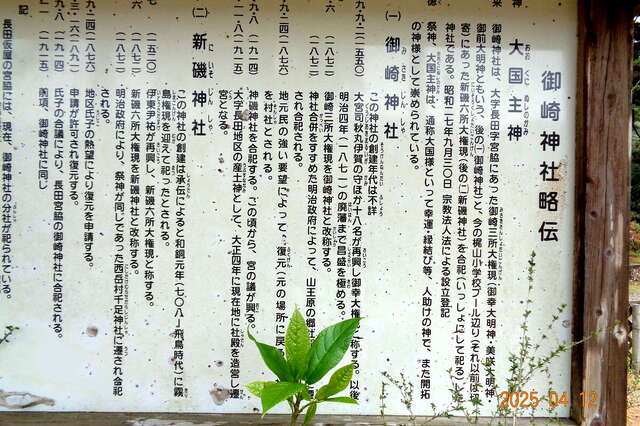 御崎神社略伝
神 大国主神
おおくにぬしのかみ
来 御崎神社は、大字長田字宮脇にあった御崎三所大権現(御幸大明神・美咲大明神・
御前大明神ともいう、後の「御崎神社」)と、今の梶山小学校プール辺り(それ以前は
寄)にあった新磯六所大権現(後の「新磯神社」)を合祀(いっしょにして祀る)した
神社である。昭和二七年九月三〇日 宗教法人法による設立登記
徳 祭神、大国主神は、通称大国様といって幸運・縁結び等、人助けの神で、また開拓
の神様として崇められている。
(一) 御崎神社
みさきじんじゃ
この神社の創建年代は不詳
大宮司秋丸伊賀の守ほか十八名が再興し御幸大権
称する。以後
明治四年(一八七一)の廃藩まで昌盛を極める。
(一八七二)
御崎三所大権現を御崎神社と改称する。
神社合併をすすめた明治政府によって、山王原の郷社
され合祀される。
地元民の強い要望によって、復元(元の場所に戻
を村社とされる。
神磯神社を合祀する。この頃から、宮の議が興る。
大字長田地区の産土神として、大正四年に現在地に社殿を造営し遷
宮となる。
(二) 新磯神社
にいそじんじゃ
この神社の創建は承伝によると和銅元年(七〇八「飛鳥時代」)に霧
島権現を迎えて祀ったとされる。
(一五二〇)
伊東尹祐が再興し、新磯六所大権現と称する。
(一八七二)
新磯六所大権現を新磯神社と改称する。
明治政府により、祭神が同じであった西岳村千足神社に遷され合祀
される。
(一八七六)
地区氏子の熱望により復元を申請する。
申請が許可され復元する。
(一九一四)
氏子の合議により、長田宮脇の御崎神社に合祀される。
(一九一五)
前項、御崎神社に同じ
記
長田仮屋の宮脇には、現在、御崎神社の分社が祀られている。
2025.04.12